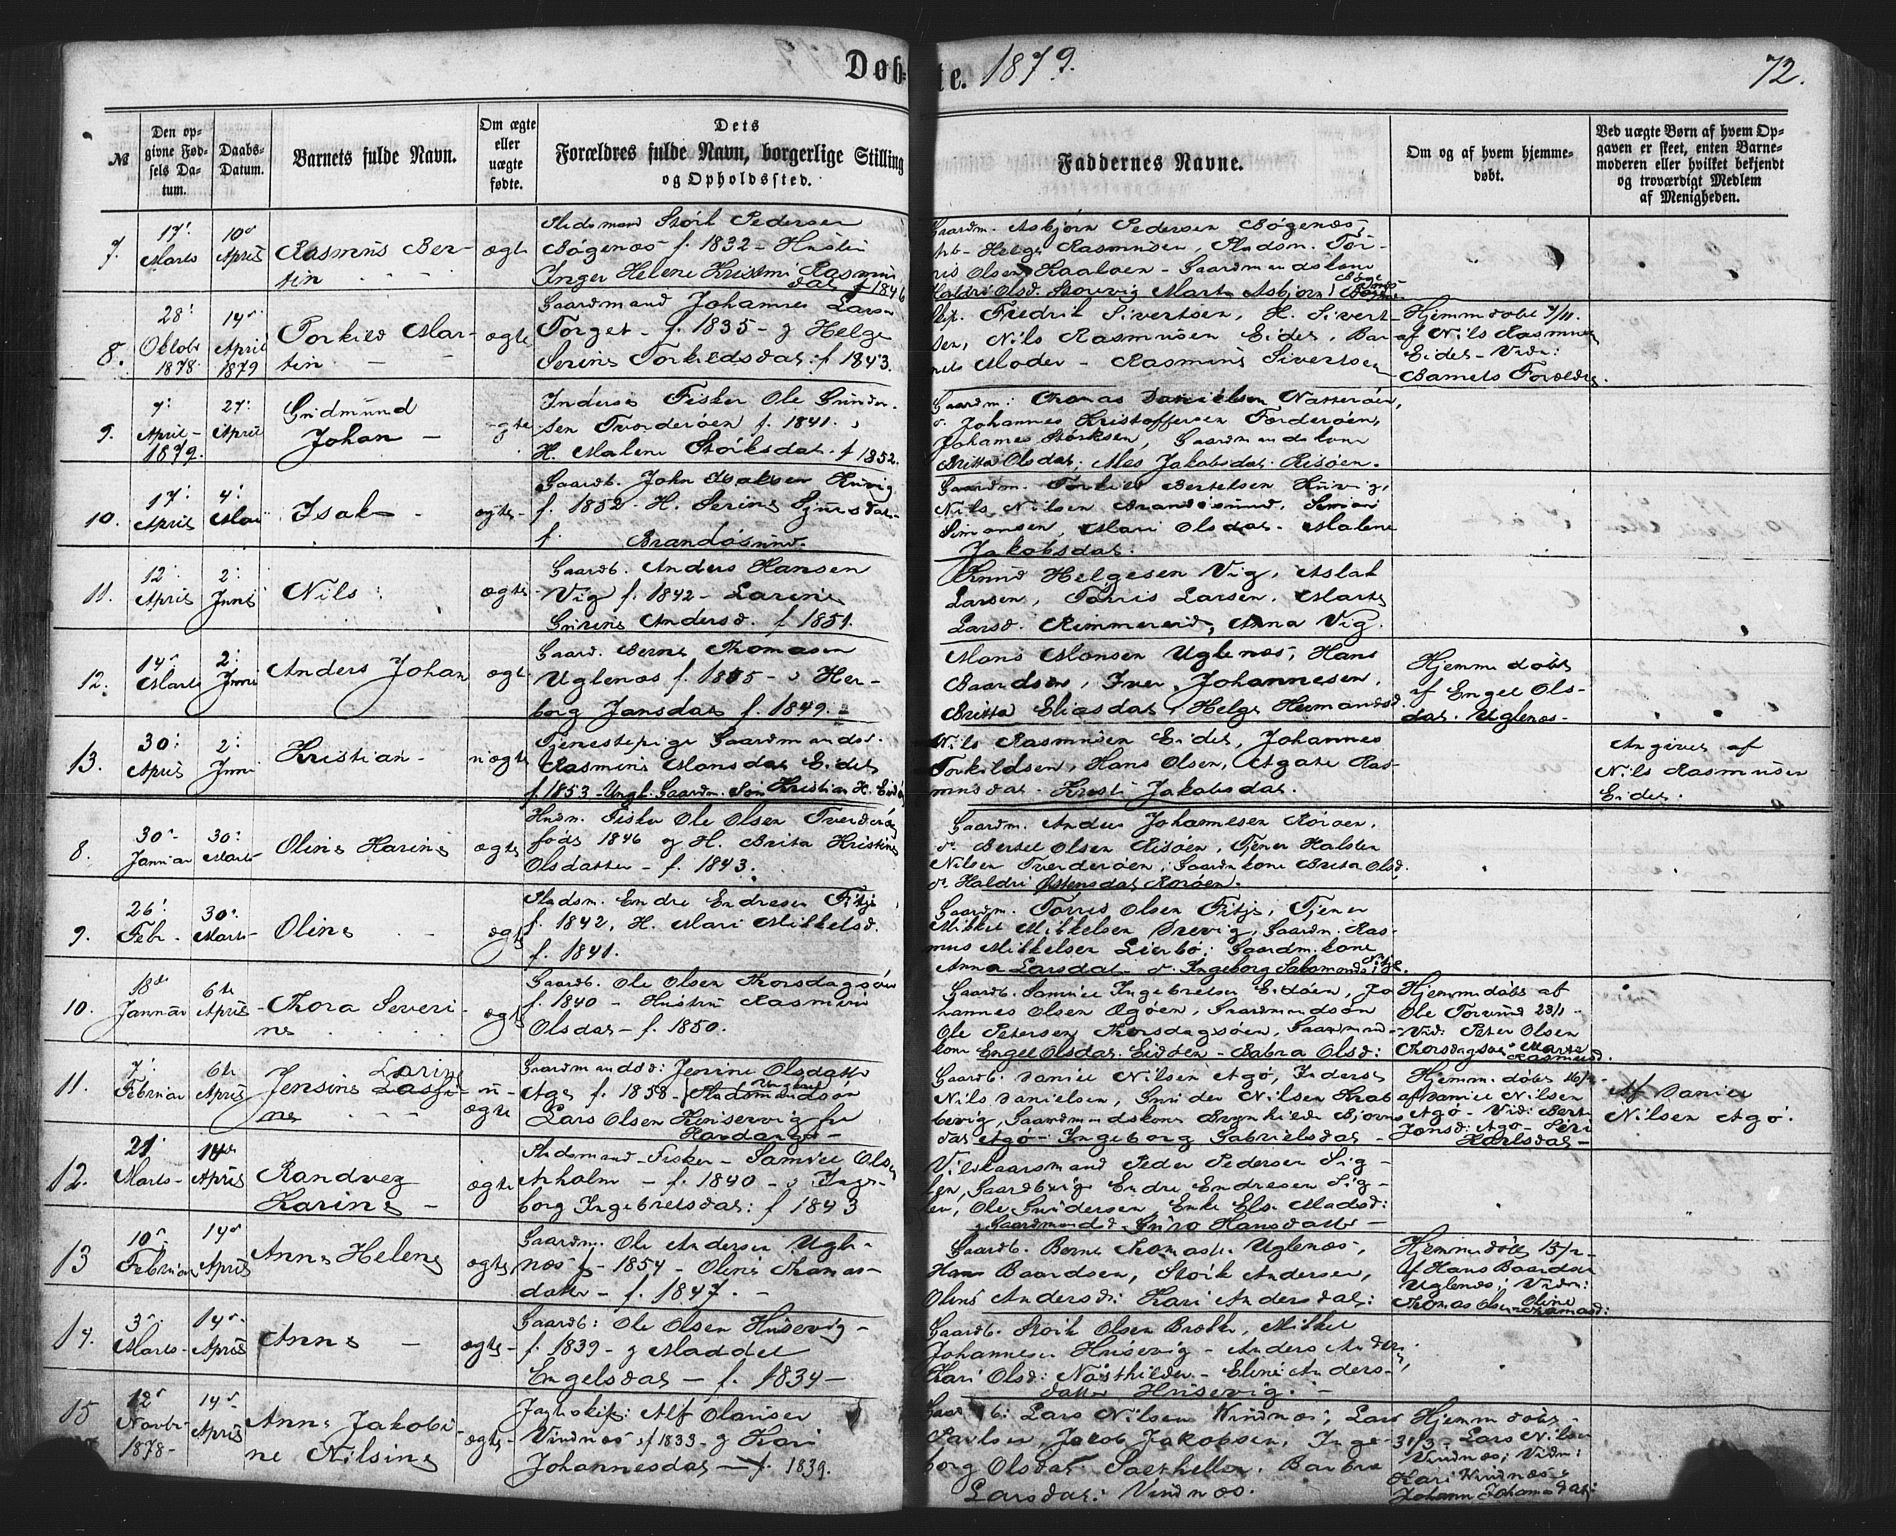 Døb=
te. 1879.
72.
№
Den op-
givne Fød-
sels Da-
tum.
Daabs-
Datum.
Barnets fulde Navn.
Om ægte
eller
uægte
fødte.
Dets
Forældres fulde Navn, borgerlige Stilling
og Opholdssted.
Faddernes Navne.
Om og af hvem hjemme-
døbt.
Ved uægte Børn af hvem Op-
gaven er skeet, enten Barne-
moderen eller hvilket bekjendt
og troværdigt Medlem
af Menigheden.
7.
17
Marts
10
April
Rasmus Ber-
tin
ægte
Pladsmand Støil Pedersen
Bøgenæs f. 1832 - Hustru
Inger Helene Rasmus
dat f 1846
Gaardm. Asbjørn Pedersen Bøgenæs,
Helge Rasmussen, Pladsm. Tør-
ris Olsen - Gaardmandskone
Olsd. Storevig Marta Asbjørns
8.
28
Oktob
1878
14
April
1879
Torkild Mar-
tin
ægte
Gaardmand Johannes Lars
Torget - f. 1835 - g Helge
Serine Torkildsdat: f 1843.
Fredrik Sivertsen, H. Sivert-
sen, Nils Rasmusen Eides, Bar-
nets Moder - Rasmus Sivertsen
Hjemmedøbt 7/11.
af Nils Rasmusen
Eides - Vidn:
Barnets Forældre.
9.
7
April -
1879.
27
April
Gudmund
Johan -
ægte
Inderst Fisker Ole Gunder-
sen Tverderøen f. 1841.
H. Malene Størksdat. f 1852.
Gaardm: Thomas Danielsen Natterøen,
Johannes Kristoffersen
Johannes Størksen, Gaardmandskone
Britta Olsdat; Jakobsdat. Risøen.
10.
17
April
4
Mai
Isak -
ægte -
Gaardb. John Isaksen Husvig
f. 1852 - H. Serine
f. Brandøsund.
Gaardm. Torkild Bertelsen
Nils Nilsen Brandøsund, Simon
Simonsen, Mari Olsdat. Malene
Jakobsdat.
11.
12
April
2
Juni
Nils
ægte
Gaardb. Anders Hansen
Vig f. 1842 - Larine
Andersd. f 1851.
Knud Helgesen Vig, Aslak
Larsen, Tørris Larsen, Marte
Larsd. Rimmereid, Anna Vig.
12.
14
Marts
2
Juni
Anders Johan
ægte
Gaard. Berne Thomasen
Uglenæs f. 1855 - Her-
borg Jansdat f. 1849.
Mons Monsen Uglenæs, Hans
Baardsen, Iver Johannesen,
Britta Eliasdat, Helge Hermundsd.
Hjemmedøbt
af Engel Ols-
dat. Uglenæs -
13.
30
April
2
Juni
Kristian -
uægte
Tjenestepige Gaardmandsd.
Rasmine Monsdat Eides
f 1853 - Ungk. Gaardm. Søn Kristian H.
Nils Rasmusen Eides, Johannes
Torkildsen, Hans Olsen, Agate Ras-
musdat. Jakobsdat.
Angives af
Nils Rasmusen
Eides.
8.
30
Januar
30
Marts
Oline Karine
ægte
Husm. Fisker Ole Olsen Tverderøen
født 1846 g H. Brita Kristine
Olsdatter - f. 1843.
Gaardm. Anders Johannesen Rorøen,
Bertel Olsen Risøen, Tjener Halsten
Nilsen Tverderøen, Gaardm kone Brita Olsd.
Haldri Østensdat Rorøen.
9.
26
Febr -
30
Marts
Oline
ægte
Pladsm. Endre Endresen Fitje
f. 1842, H. Mari Mikkelsd.
f. 1841.
Gaardm. Tørris Olsen Fitje, Tjener
Mikkel Mikkelsen Drevig, Gaardm. Ras-
mus Mikkelsen Lierbø; Gaardm. kone
Anna Larsdat - Ingeborg Salamonsd. Fitje.
10.
18
Januar
6te
April
Thora Severi-
ne
ægte
Gaardb. Ole Olsen Thorsdagsøen
f. 1840 - Hustru Rasmine
Olsdat - f. 1850.
Gaardb. Samuel Ingebretsen Eidøen, Jo-
hannes Olsen Øgøen, Gaardmandsøn
Ole Petersen Thorsdagsøen, Gaardmand-
kone Engel Olsdat: Eidøen - Olsd:
Hjemmedøbt af
Ole Torsund 23/1 -
Vid: Peter Olsen
Thorsdagsøen Marte
Rasmusd.
11.
7
Februar
6te
April
Larine
Jensine
ne
u-
ægte
Gaardmandsd: Jenine Olsdatter
Agø f. 1858 - Ungkarl Pladsmandsøn
Lars Olsen Kinservig fra
Hardanger -
Gaardb: Daniel Nilsen Agø, Inderst
Nils Danielsen, Nilsen Krab-
bevig, Gaardmandskone Brynhilde Bjørns
dat Agø - Ingeborg Gabrielsdat -
Hjemmedøbt 16/2
af Daniel Nilsen
Agø - Vid: Bert
Jonsd: Agø - Siri
Karlsdat -
Af Daniel
Nilsen Agø.
12.
21
Marts -
14de
April
Randveg
Karine -
ægte
Pladsmand - Fisker - Samuel Olsen
Arholm - f. 1840 - Inge-
borg Ingebretsdat: f 1843
Vilskaarsmand Peder Pedersen Sig-
len, Gaardbrug Endre Endresen Sig-
len, Ole Gundersen, Enke Els. Madsd:
Gaardmandsd. Guro Hansdatter -
13
10
Februar
14
April
Anne Helene
ægte
Gaardm. Ole Andersen Ugle-
næs f. 1854 - Oline Thomas-
datter - f. 1847. -
Gaardb. Berne Thomasen Uglenæs,
Hans Baardsen, Støik Andersen,
Oline Andersd: Kari Andersdat:
Hjemmedøbt 13/2
af Hans Baardsen
Uglenæs; Vidn:
Thomas Olsen Oline
Thomasd:
14.
3
Marts -
14
April
Anne -
ægte -
Gaardb: Ole Olsen Husevig -
f. 1839 - g Maddel
Engelsdat - f. 1834 -
Gaardb. Støik Olsen Mikkel
Johannesen Husevig - Anders Anders
Kari Olsd: - Eline Anders-
datter Husevig. -
15
12
Novbr
1878 -
14
April
Anne Jakobi-
ne Nilsine
ægte -
Alf Olausen
Vindnæs f 1833 - g Kari
Johannesdat - f. 1839.
Lars Nilsen Vindnæs, Lars
Paulsen Jacob Jakobsen, Inge-
borg Olsdat Sæthellen. Barbra
Larsdat: Vindnæs.
Hjemmedøbt -
31/3 - Lars Nilsen
Vindnæs; Vidn:
Kari Vindnæs
Johann Johannesdat: